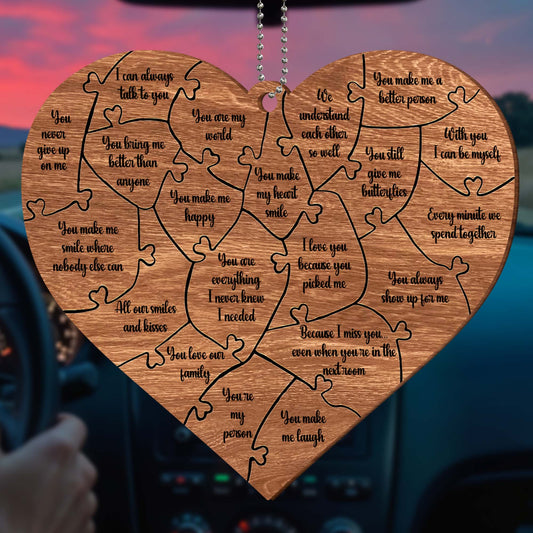 I can always
talk to you
You make me a
better person
You
never
give up
on me
You are my
world
We
understand
each other
so well
With you
I can be myself
You bring me
better than
anyone
You make
my heart
smile
You still
give me
butterflies
You make me
happy
Every minute we
spend together
You make me
smile where
nobody else can
You are
everything
I never knew
I needed
I love you
because you
picked me
You always
show up for me
All our smiles
and kisses
Because I miss you
even when you're in the
next room
You love our
family
You're
my
person
You make
me laugh